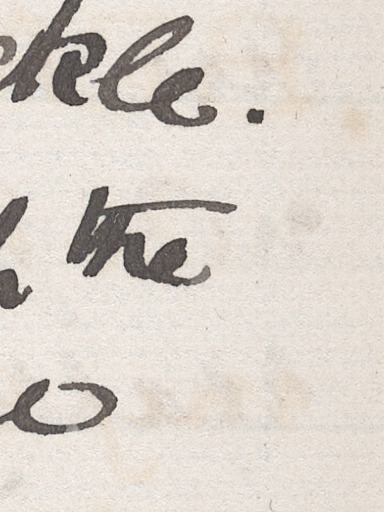 ckle.
h the
o